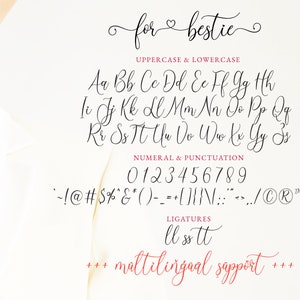 for bestie
UPPERCASE & LOWERCASE
Aa Bb Cc Dd Ee Ff Gg Hh
Ii Jj Kk Ll Mm Nn Oo Pp Qq
Rr Ss Tt Uu Vv Ww Xx Yy Zz
NUMERAL & PUNCTUATION
0123456789
`~!@#$%^&*()-_=+[]{}|\;:'"<>,./©®™
LIGATURES
ll ss tt
+++ multilingual support +++